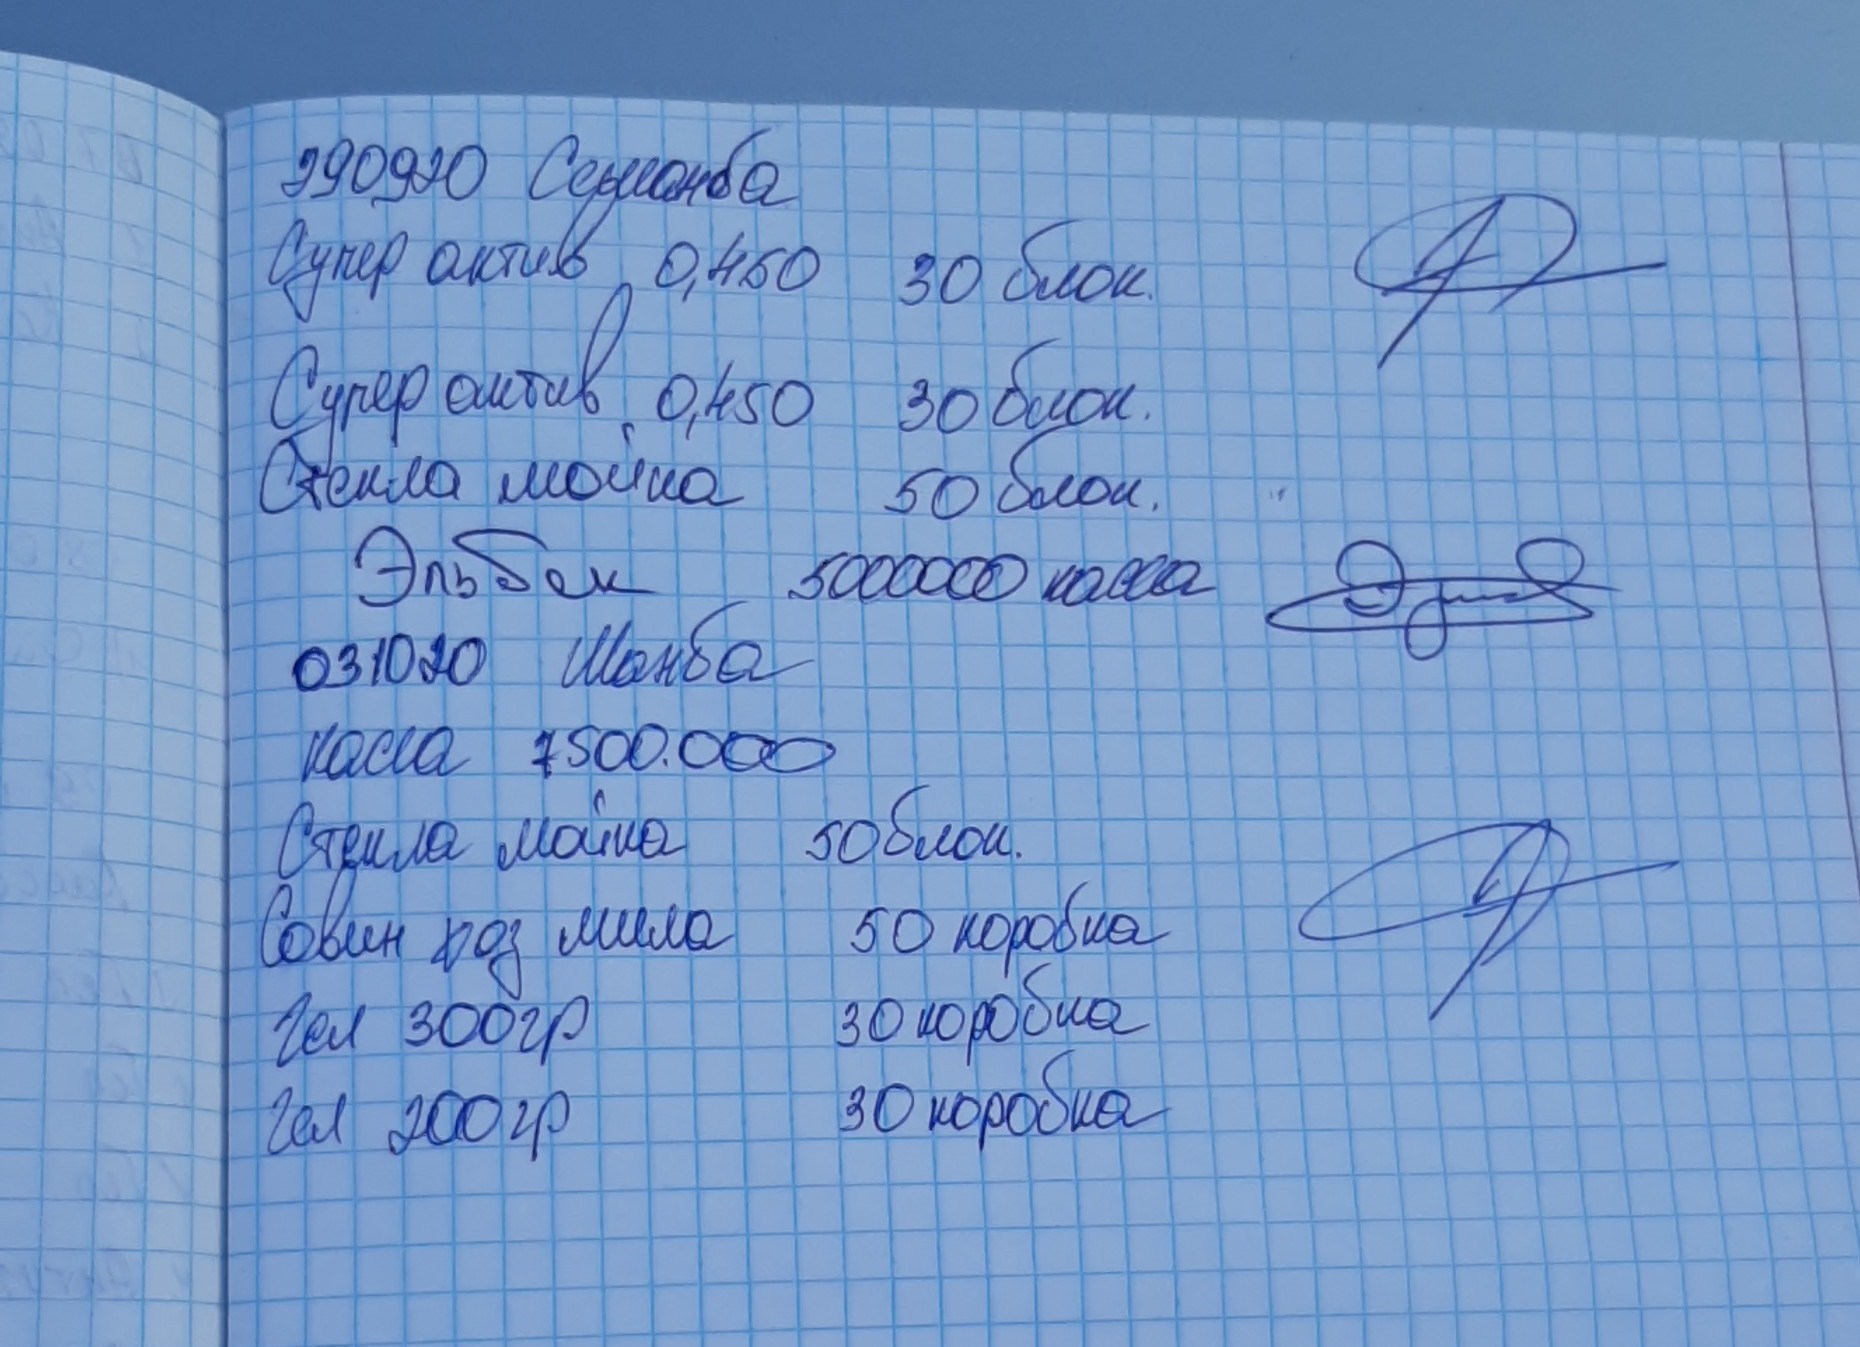 290920 Сешанба
Супер актив 0,450 30 блок.
Супер актив 0,450 30 блок.
Стекла мойка 50 блок.
Эльбек 5000000 касса
031020 Шанба
касса 7500.000
Стекла мойка 50 блок.
Совин роз мила 50 коробка
Гел 300гр 30 коробка
Гел 200гр 30 коробка